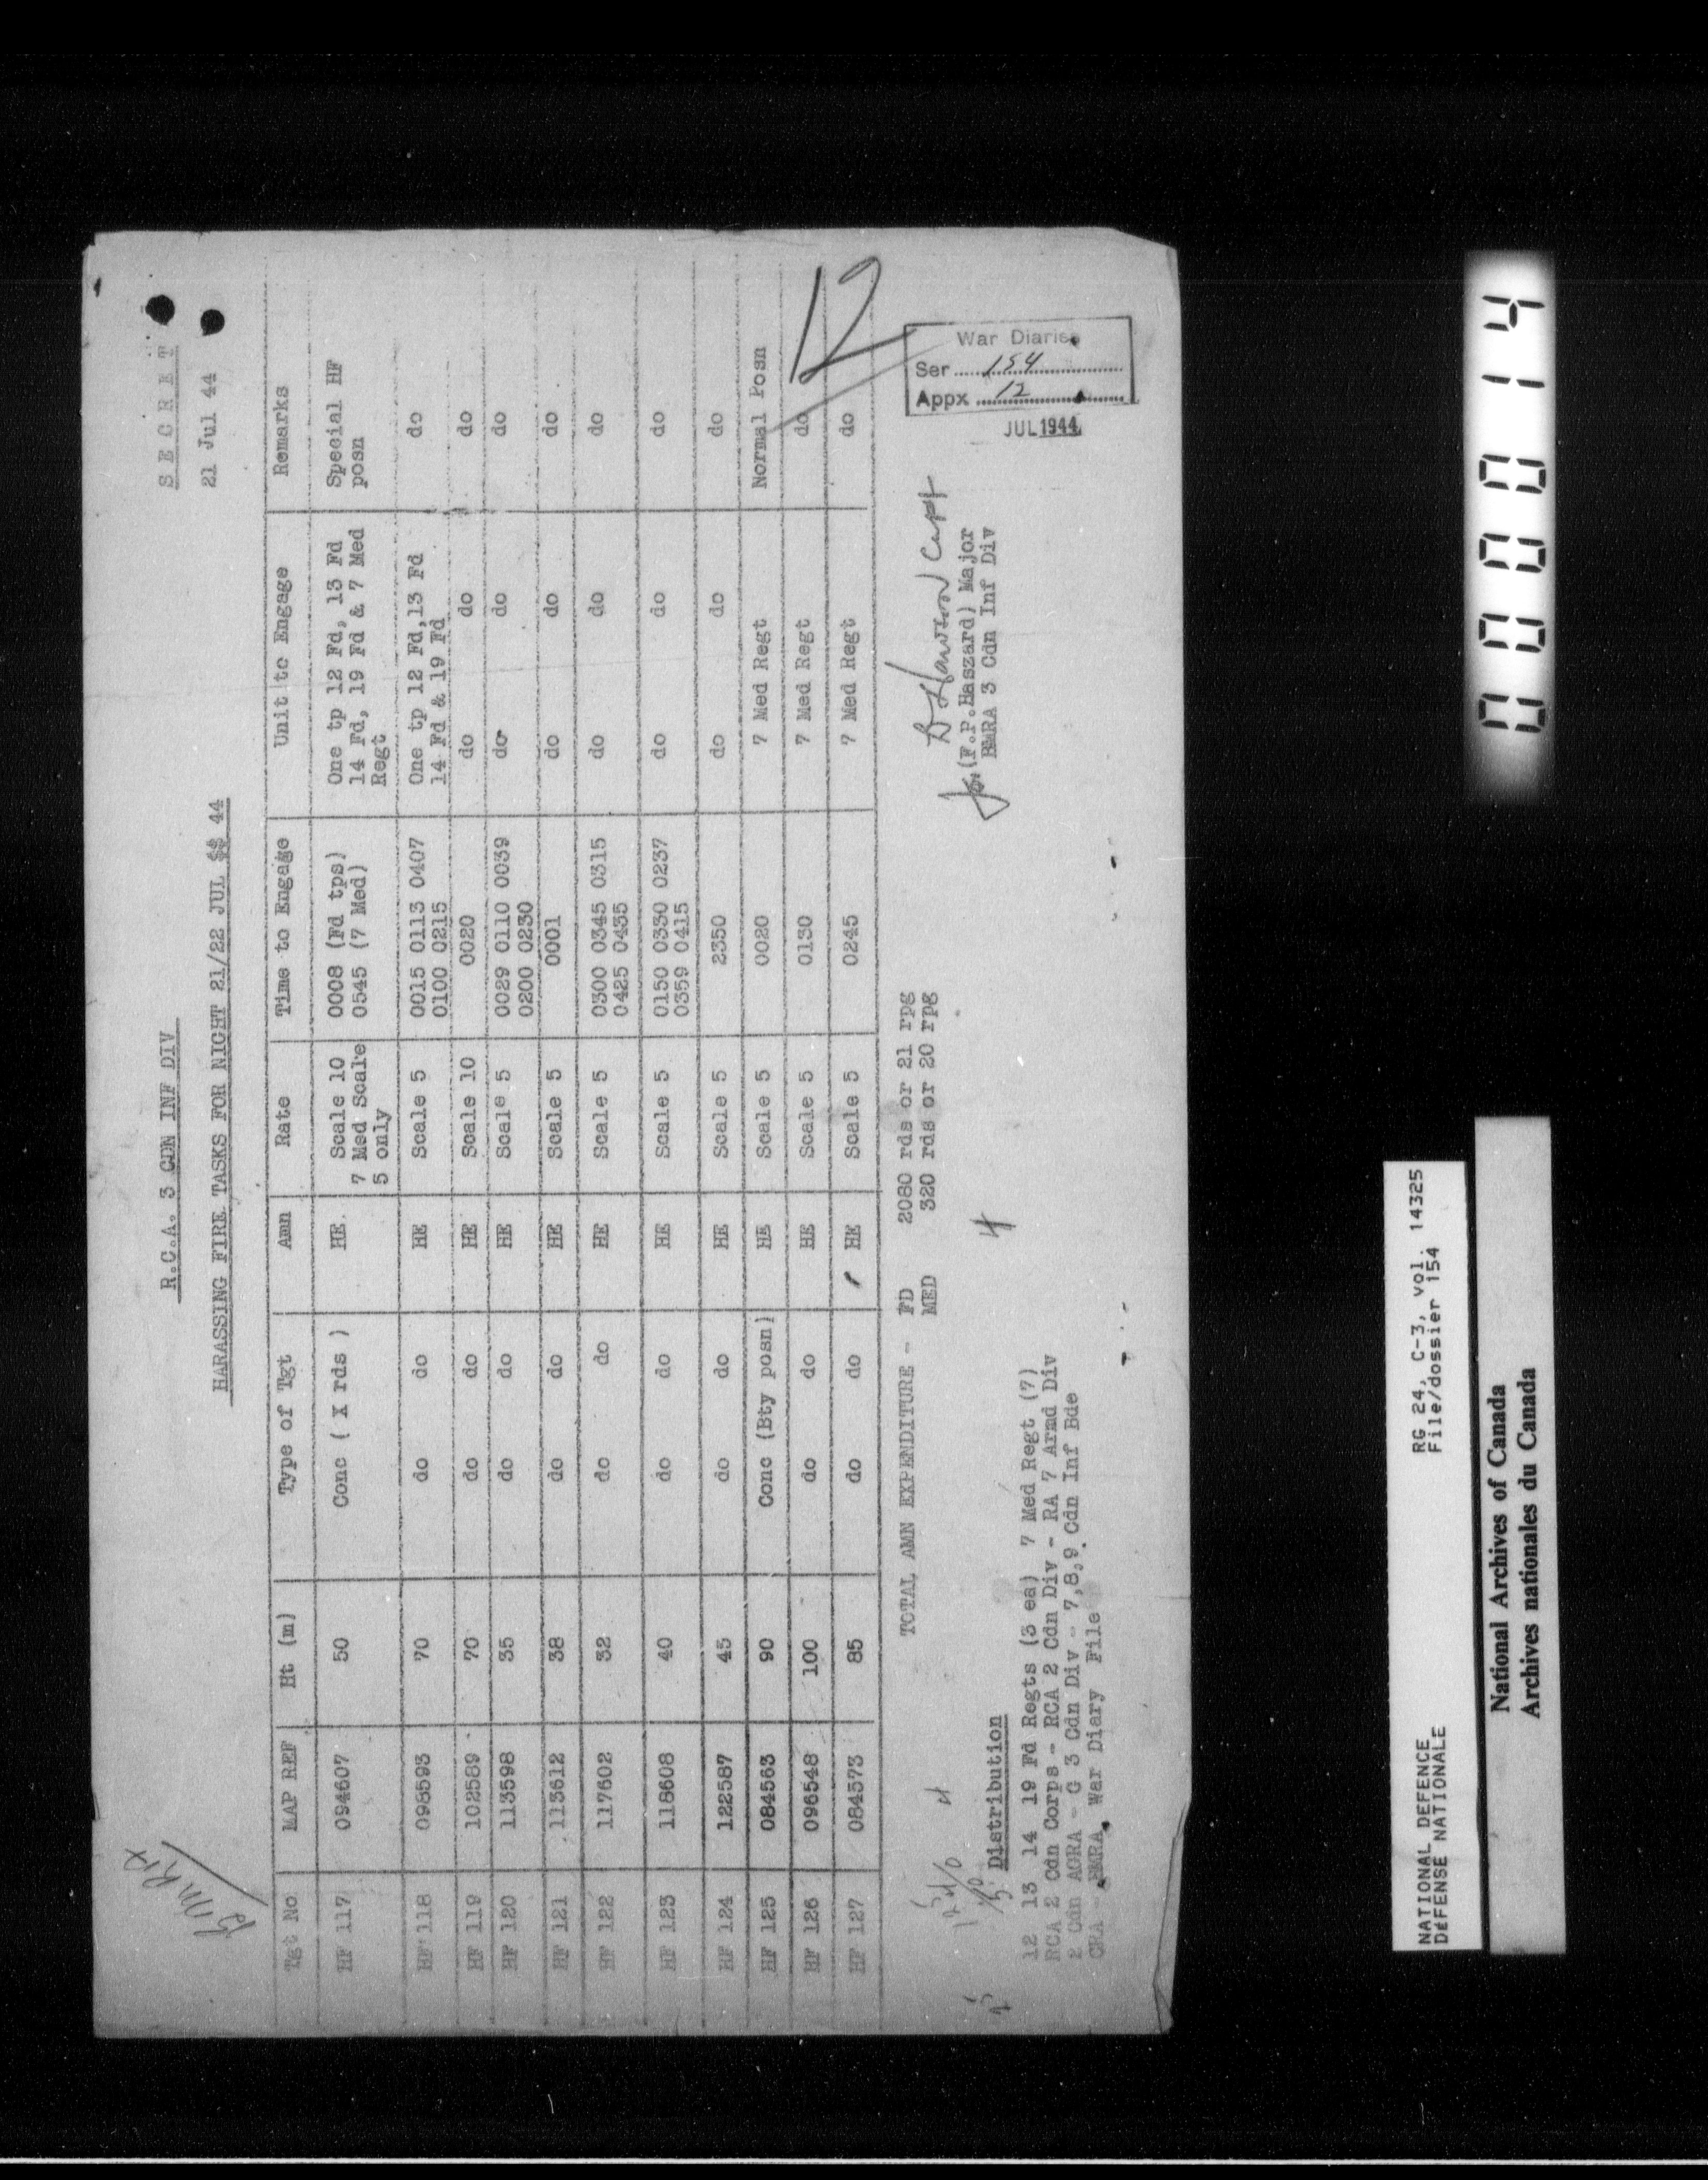 S E C R E T
21 Jul 44
R.C.A. 3 CDN INF DIV
HARASSING FIRE TASKS FOR NIGHT 21/22 JUL 44
Tgt No MAP REF Ht (m) Type of Tgt Amn Rate Time to Engage Unit to Engage Remarks
HF 117 094607 50 Conc ( X rds ) HE Scale 10 0008 (Fd tps) One tp 12 Fd, 13 Fd Special HF
7 Med Scale 0545 (7 Med) 14 Fd, 19 Fd & 7 Med posn
5 only Regt
HF 118 098593 70 do do HE Scale 5 0015 0113 0407 One tp 12 Fd, 13 Fd do
0100 0215 14 Fd & 19 Fd
HF 119 102589 70 do do HE Scale 10 0020 do do do
HF 120 113598 35 do do HE Scale 5 0029 0110 0039 do do do
0200 0230
HF 121 113612 38 do do HE Scale 5 0001 do do do
HF 122 117602 32 do do HE Scale 5 0300 0345 0315 do do do
0425 0435
HF 123 118608 40 do do HE Scale 5 0150 0330 0237 do do do
0359 0415
HF 124 122587 45 do do HE Scale 5 2350 do do do
HF 125 084563 90 Conc (Bty posn) HE Scale 5 0020 7 Med Regt Normal Posn
HF 126 096548 100 do do HE Scale 5 0130 7 Med Regt do
HF 127 084573 85 do do HE Scale 5 0245 7 Med Regt do
12
TOTAL AMN EXPENDITURE - FD 2080 rds or 21 rpg
MED 320 rds or 20 rpg
Capt
for (F.P.Haszard) Major
BMRA 3 Cdn Inf Div
War Diaries
Ser 154
Appx 12
JUL 1944
Distribution
12 13 14 19 Fd Regts (3 ea) 7 Med Regt (7)
RCA 2 Cdn Corps - RCA 2 Cdn Div - RA 7 Armd Div
2 Cdn AGRA - G 3 Cdn Div - 7,8,9 Cdn Inf Bde
CRA - BMRA War Diary File
NATIONAL DEFENCE RG 24, C-3, vol. 14325
DÉFENSE NATIONALE File/dossier 154
National Archives of Canada
Archives nationales du Canada
000014